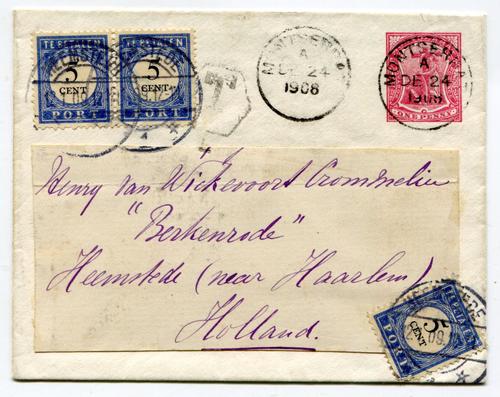 TE BETALEN TE BETALEN
5 5
CENT CENT
PORT PORT
T
MONTSERRAT
A
DE 24
1908
MONTSERRAT
A
DE 24
1908
ONE PENNY
Henry van Wickevoort Crommelin
"Berkenrode"
Heemstede (near Haarlem)
Holland.
HEEMSTEDE
TE BETALEN
5
CENT
PORT